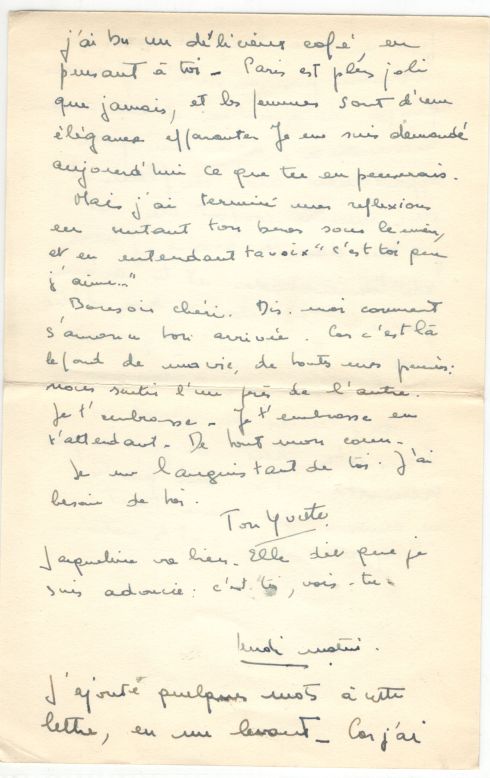 j'ai bu un délicieux café, en
pensant à toi - Paris est plus joli
que jamais, et les femmes sont d'une
élégance effarante. Je me suis demandé
aujourd'hui ce que tu en penserais.
Mais j'ai terminé mes reflexions
en sentant ton bras sous le mien,
et en entendant ta voix "c'est toi que
j'aime..."
Bonsoir chéri. Dis-moi comment
s'annonce ton arrivée. Car c'est là
le fond de ma vie, de toutes mes pensées:
nous sentir l'un près de l'autre.
Je t'embrasse - Je t'embrasse en
t'attendant. De tout mon coeur.
Je me languis tant de toi. J'ai
besoin de toi.
Ton Yvette
Jacqueline va bien. Elle dit que je
suis adoucie: c'est toi, vois-tu.
lundi matin.
J'ajoute quelques mots à cette
lettre, en me levant - Car j'ai